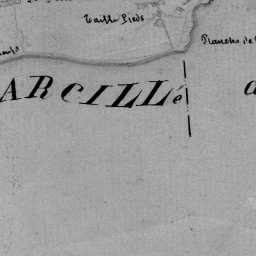 Taille Pieds
Planche de
ARCILLé